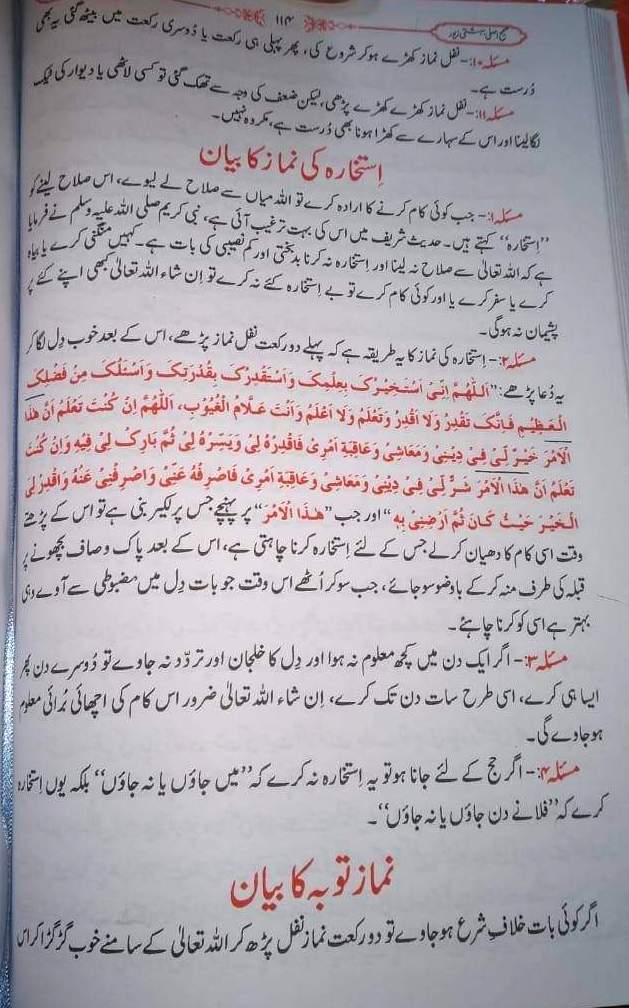 صحیح اصلی بہشتی زیور
۱۱۴
مسئلہ۱۰:- نفل نماز کھڑے ہوکر شروع کی، پھر پہلی ہی رکعت یا دُوسری رکعت میں بیٹھ گئی یہ بھی
دُرست ہے۔
مسئلہ۱۱:- نفل نماز کھڑے کھڑے پڑھی، لیکن ضعف کی وجہ سے تھک گئی تو کسی لاٹھی یا دیوار کی ٹیک
لگالینا اور اس کے سہارے سے کھڑا ہونا بھی دُرست ہے، مکروہ نہیں۔
اِستخارہ کی نماز کا بیان
مسئلہ۱:- جب کوئی کام کرنے کا ارادہ کرے تو اللہ میاں سے صلاح لے لیوے، اس صلاح لینے کو
”اِستخارہ“ کہتے ہیں۔ حدیث شریف میں اس کی بہت ترغیب آئی ہے، نبی کریم صلی اللہ علیہ وسلم نے فرمایا
ہے کہ اللہ تعالیٰ سے صلاح نہ لینا اور اِستخارہ نہ کرنا بدبختی اور کم نصیبی کی بات ہے۔ کہیں منگنی کرے یا بیاہ
کرے یا سفر کرے یا اور کوئی کام کرے تو بے اِستخارہ کئے نہ کرے تو اِن شاء اللہ تعالیٰ کبھی اپنے کئے پر
پشیمان نہ ہوگی۔
مسئلہ۲:- اِستخارہ کی نماز کا یہ طریقہ ہے کہ پہلے دو رکعت نفل نماز پڑھے، اس کے بعد خوب دِل لگا کر
یہ دُعا پڑھے: ”اَللّٰهُمَّ اِنِّیْ اَسْتَخِیْرُکَ بِعِلْمِکَ وَاَسْتَقْدِرُکَ بِقُدْرَتِکَ وَاَسْئَلُکَ مِنْ فَضْلِکَ
الْعَظِیْمِ فَاِنَّکَ تَقْدِرُ وَلَا اَقْدِرُ وَتَعْلَمُ وَلَا اَعْلَمُ وَاَنْتَ عَلَّامُ الْغُیُوْبِ، اَللّٰهُمَّ اِنْ کُنْتَ تَعْلَمُ اَنَّ هٰذَا
الْاَمْرَ خَیْرٌ لِّیْ فِیْ دِیْنِیْ وَمَعَاشِیْ وَعَاقِبَةِ اَمْرِیْ فَاقْدِرْهُ لِیْ وَیَسِّرْهُ لِیْ ثُمَّ بَارِکْ لِیْ فِیْهِ وَاِنْ کُنْتَ
تَعْلَمُ اَنَّ هٰذَا الْاَمْرَ شَرٌّ لِّیْ فِیْ دِیْنِیْ وَمَعَاشِیْ وَعَاقِبَةِ اَمْرِیْ فَاصْرِفْهُ عَنِّیْ وَاصْرِفْنِیْ عَنْهُ وَاقْدِرْ لِیَ
الْخَیْرَ حَیْثُ کَانَ ثُمَّ اَرْضِنِیْ بِهٖ“ اور جب ”هٰذَا الْاَمْرَ“ پر پہنچے جس پر لکیر بنی ہے تو اس کے پڑھتے
وقت اسی کام کا دھیان کرلے جس کے لئے اِستخارہ کرنا چاہتی ہے، اس کے بعد پاک و صاف بچھونے پر
قبلہ کی طرف منہ کرکے باوضو سوجائے، جب سوکر اُٹھے اس وقت جو بات دِل میں مضبوطی سے آوے وہی
بہتر ہے اسی کو کرنا چاہئے۔
مسئلہ۳:- اگر ایک دن میں کچھ معلوم نہ ہوا اور دِل کا خلجان اور تردّد نہ جاوے تو دُوسرے دن پھر
ایسا ہی کرے، اسی طرح سات دن تک کرے، اِن شاء اللہ تعالیٰ ضرور اس کام کی اچھائی بُرائی معلوم
ہوجاوے گی۔
مسئلہ۴:- اگر حج کے لئے جانا ہو تو یہ اِستخارہ نہ کرے کہ ”میں جاؤں یا نہ جاؤں“ بلکہ یوں اِستخارہ
کرے کہ ”فلانے دن جاؤں یا نہ جاؤں“۔
نمازِ توبہ کا بیان
اگر کوئی بات خلافِ شرع ہوجاوے تو دو رکعت نماز نفل پڑھ کر اللہ تعالیٰ کے سامنے خوب گڑگڑا کر اس